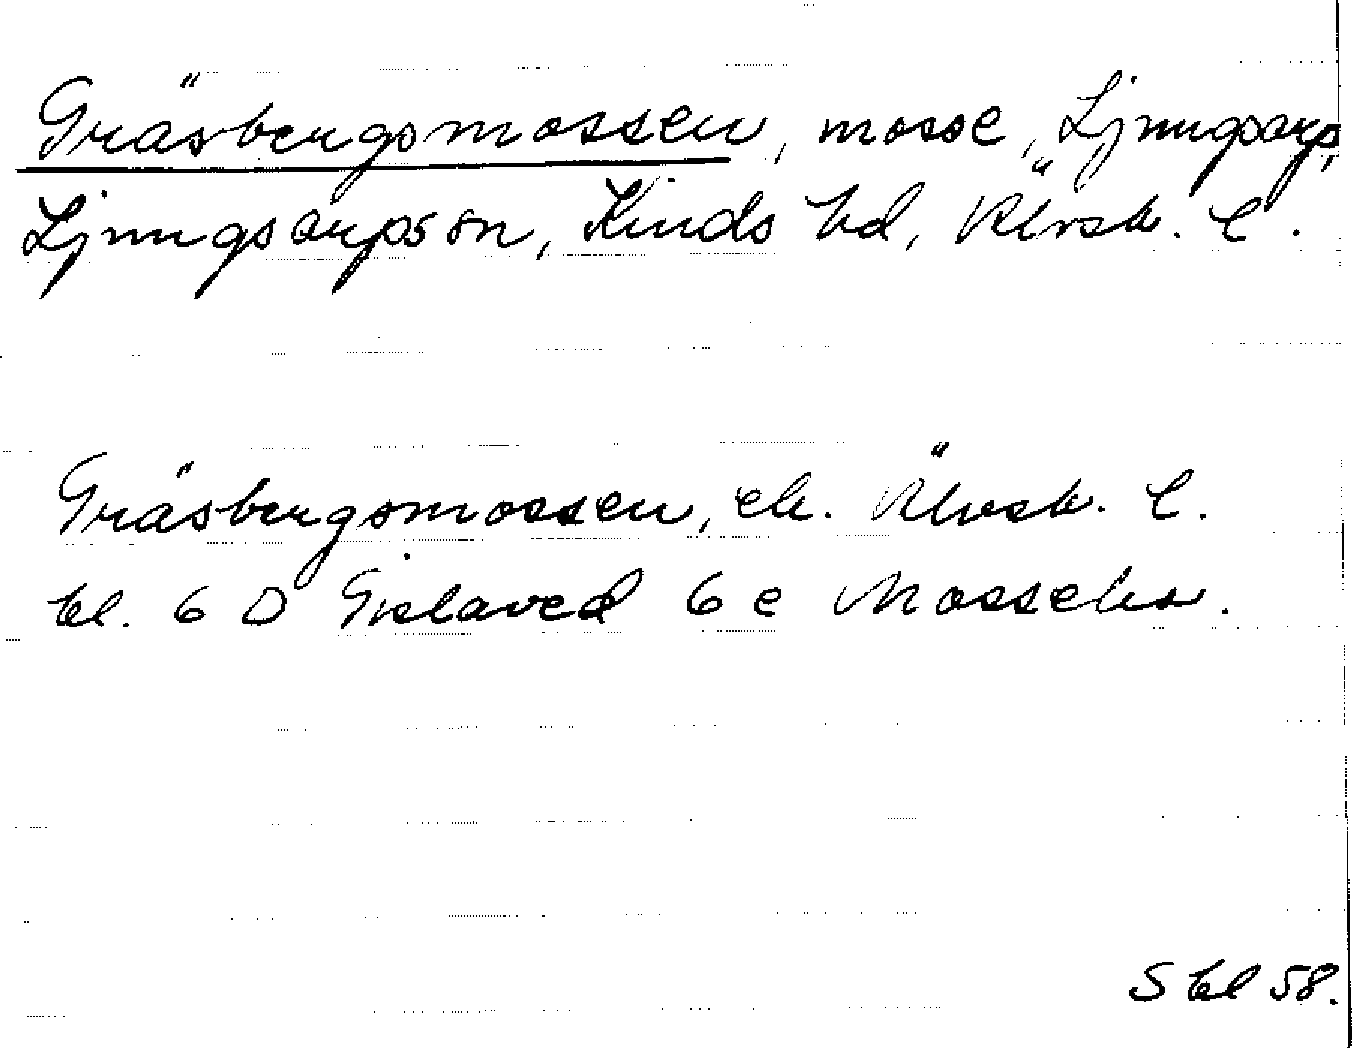 Gräsbergsmossen, mosse, Ljungsarp,
Ljungsarps sn, Kinds hd, Älvsb. l.
Gräsbergsmossen, ek. Älvsb. l.
bl. 6 D Gislaved 6 e Mossebo.
S bl 58.